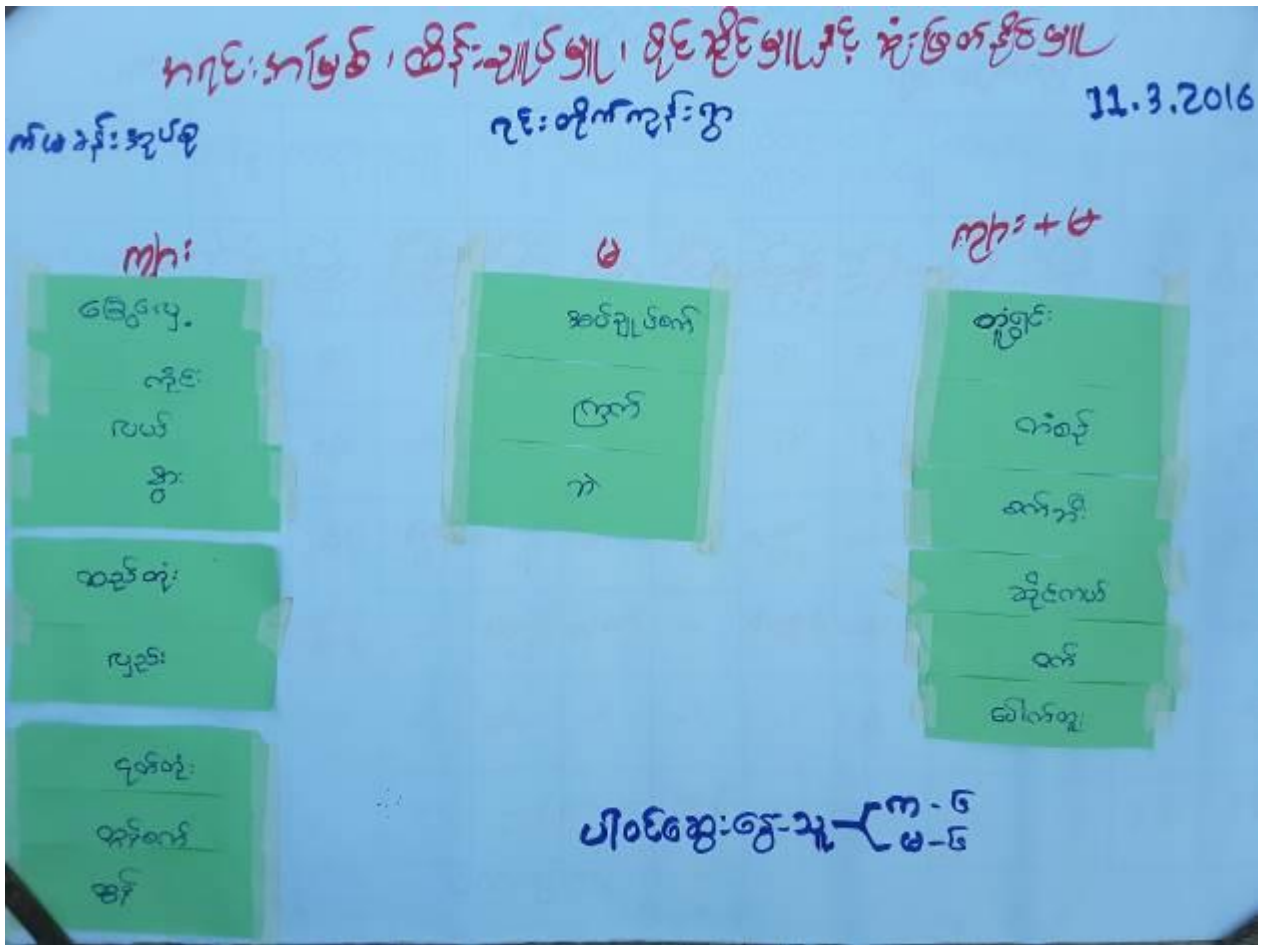 အရင်းအမြစ်၊ ထိန်းချုပ်မှု၊ ပိုင်ဆိုင်မှုနှင့် ဆုံးဖြတ်နိုင်မှု
11.3.2016
ရင်းတိုက်ကျွန်းရွာ
ကျား
မြွေပွေး
ကိုင်း
လယ်
နွား
ထည်တုံး
လှည်း
ငုတ်တုံး
ထွန်စက်
ဆန်
မ
အပ်ချုပ်စက်
ကြက်
ဘဲ
ကျား + မ
တူရွင်း
စက်ဘီး
ဆိုင်ကယ်
ဝက်
ပေါက်တူး
ပါဝင်ဆွေးနွေးသူ
ကျ - ၆
မ - ၆